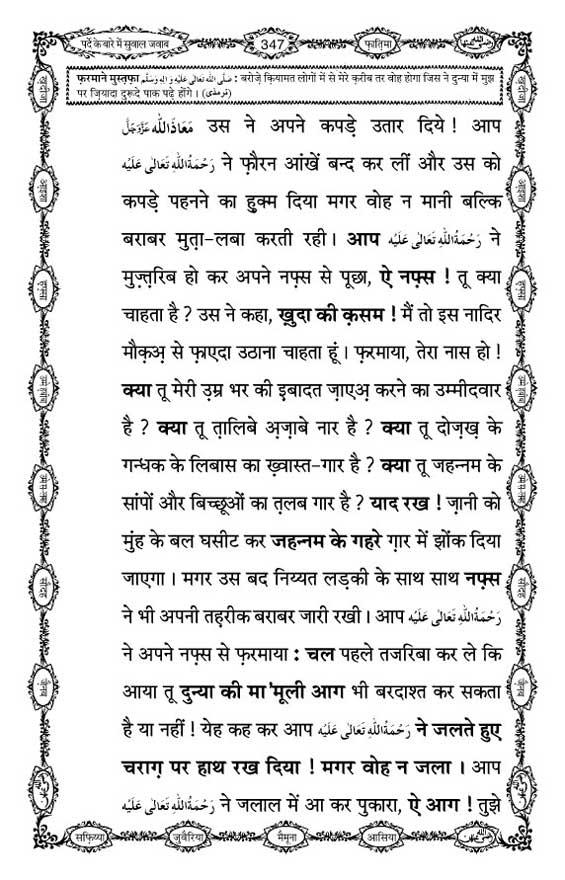 पर्दे के बारे में सुवाल जवाब 347 फ़ातिमा
फ़रमाने मुस्तफ़ा صَلَّى اللّٰه تَعَالٰى عَلَيْهِ وَاٰلِهٖ وَسَلَّم : बरोज़े क़ियामत लोगों में से मेरे क़रीब तर वोह होगा जिस ने दुन्या में मुझ
पर ज़ियादा दुरूदे पाक पढ़े होंगे । (ترمذى)
مَعَاذَ اللّٰه عَزَّوَجَلَّ उस ने अपने कपड़े उतार दिये ! आप
رَحْمَةُ اللّٰهِ تَعَالٰى عَلَيْه ने फ़ौरन आंखें बन्द कर लीं और उस को
कपड़े पहनने का हुक्म दिया मगर वोह न मानी बल्कि
बराबर मुता़-लबा करती रही । आप رَحْمَةُ اللّٰهِ تَعَالٰى عَلَيْه ने
मुज़्त़रिब हो कर अपने नफ़्स से पूछा, ऐ नफ़्स ! तू क्या
चाहता है ? उस ने कहा, ख़ुदा की क़सम ! मैं तो इस नादिर
मौक़अ़ से फ़ाएदा उठाना चाहता हूं । फ़रमाया, तेरा नास हो !
क्या तू मेरी उ़म्र भर की इ़बादत ज़ाएअ़ करने का उम्मीदवार
है ? क्या तू त़ालिबे अ़ज़ाबे नार है ? क्या तू दोज़ख़ के
गन्धक के लिबास का ख़्वास्त-गार है ? क्या तू जहन्नम के
सांपों और बिच्छूओं का त़लब गार है ? याद रख ! ज़ानी को
मुंह के बल घसीट कर जहन्नम के गहरे ग़ार में झोंक दिया
जाएगा । मगर उस बद निय्यत लड़की के साथ साथ नफ़्स
ने भी अपनी तह़रीक बराबर जारी रखी । आप رَحْمَةُ اللّٰهِ تَعَالٰى عَلَيْه
ने अपने नफ़्स से फ़रमाया : चल पहले तजरिबा कर ले कि
आया तू दुन्या की मा'मूली आग भी बरदाश्त कर सकता
है या नहीं ! येह कह कर आप رَحْمَةُ اللّٰهِ تَعَالٰى عَلَيْه ने जलते हुए
चराग़ पर हाथ रख दिया ! मगर वोह न जला । आप
رَحْمَةُ اللّٰهِ تَعَالٰى عَلَيْه ने जलाल में आ कर पुकारा, ऐ आग ! तुझे
सफ़िय्या जुवैरिया मैमूना आसिया